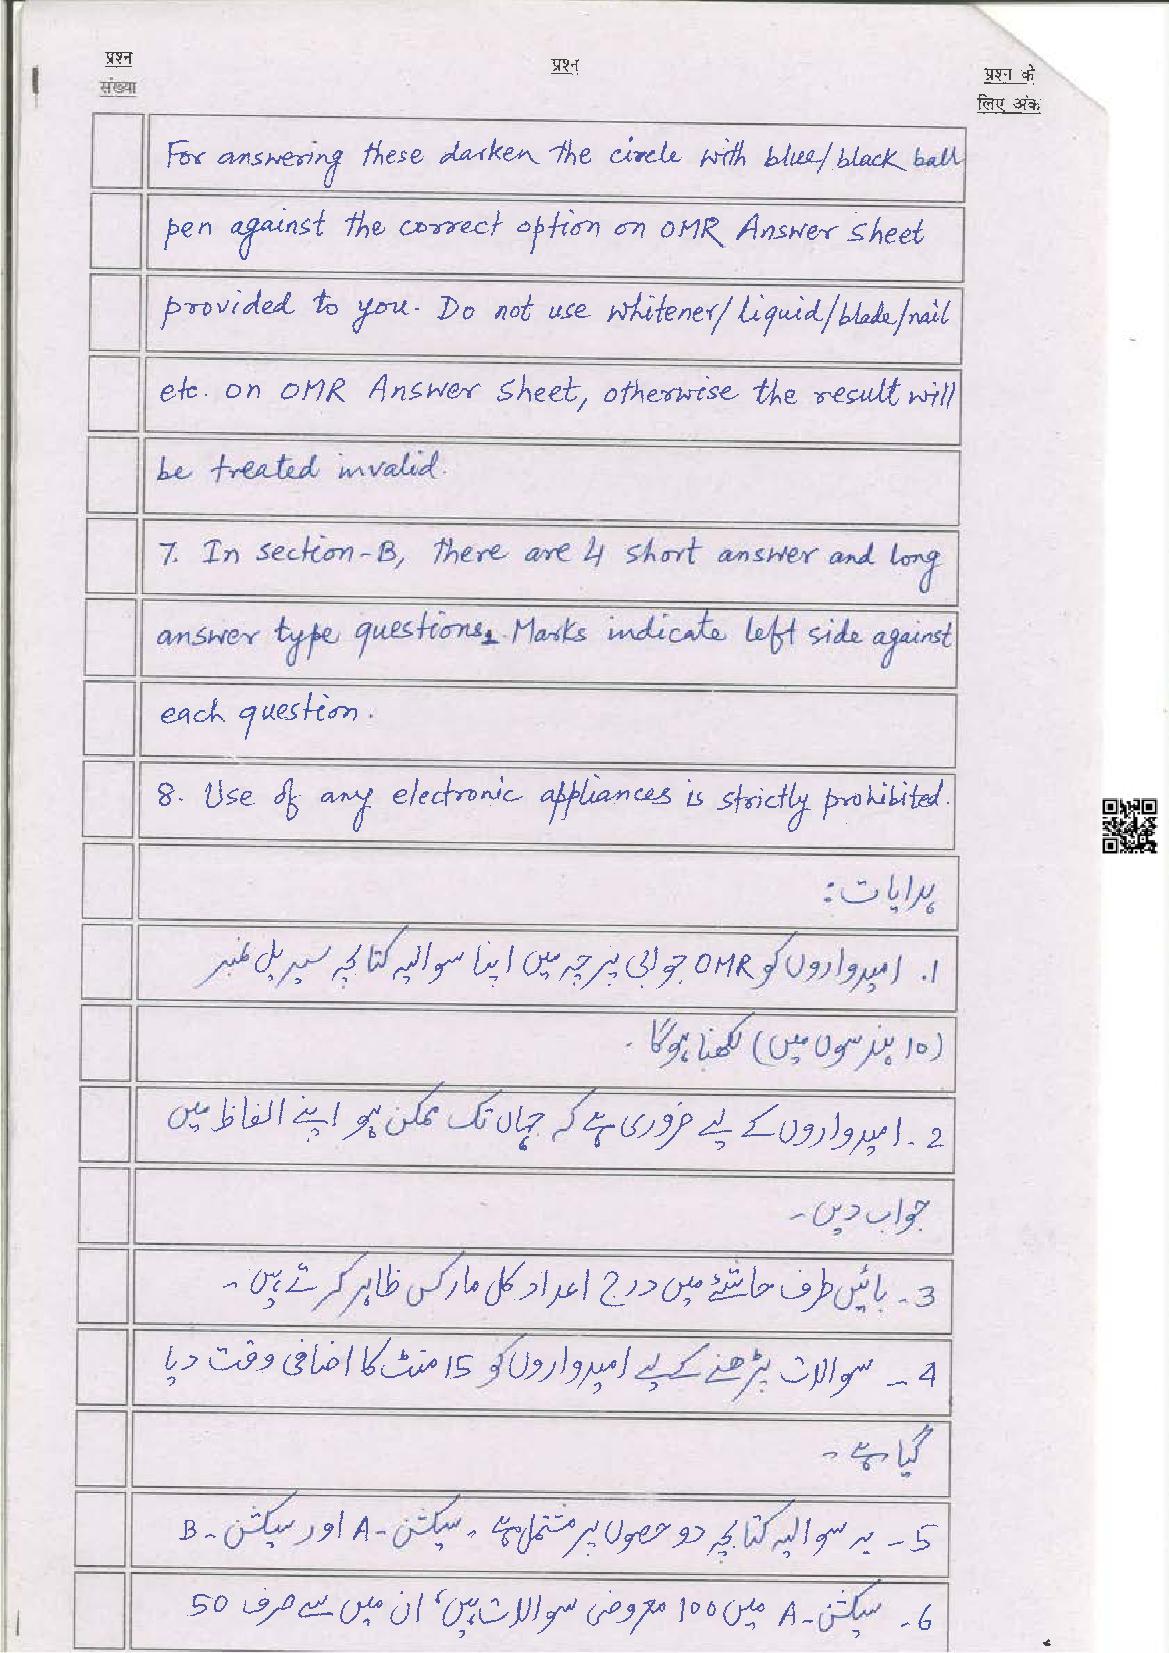 प्रश्न
संख्या
प्रश्न
प्रश्न के
लिए अंक
For answering these darken the circle with blue/black ball
pen against the correct option on OMR Answer Sheet
provided to you. Do not use whitener/liquid/blade/nail
etc. on OMR Answer Sheet, otherwise the result will
be treated invalid.
7. In section-B, there are 4 short answer and long
answer type questions. Marks indicate left side against
each question.
8. Use of any electronic appliances is strictly prohibited.
ہدایات:
1. امیدواروں کو OMR جوابی پرچہ میں اپنا سوالیہ کتابچہ سیریل نمبر
(10 ہندسوں میں) لکھنا ہوگا۔
2۔ امیدواروں کے لیے ضروری ہے کہ جہاں تک ممکن ہو اپنے الفاظ میں
جواب دیں۔
3۔ بائیں طرف حاشئے میں درج اعداد کل مارکس ظاہر کرتے ہیں۔
4۔ سوالات پڑھنے کے لیے امیدواروں کو 15 منٹ کا اضافی وقت دیا
گیا ہے۔
5۔ یہ سوالیہ کتابچہ دو حصوں پر مشتمل ہے۔ سیکشن-A اور سیکشن-B
6۔ سیکشن-A میں 100 معروضی سوالات ہیں، ان میں سے صرف 50